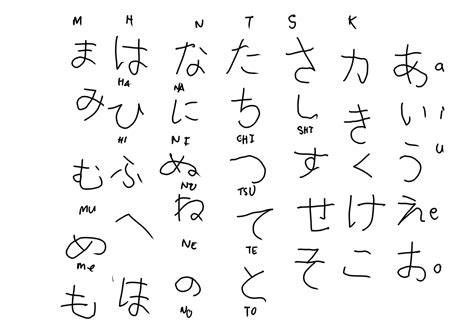 M H N T S K
ま は な た さ カ あ a
HA NA
み ひ に ち し き い i
HI NI CHI SHI
む ふ ぬ つ す く う u
MU NU TSU
め へ ね て せ け え e
Me NE TE
も ほ の と そ こ お o
NO TO